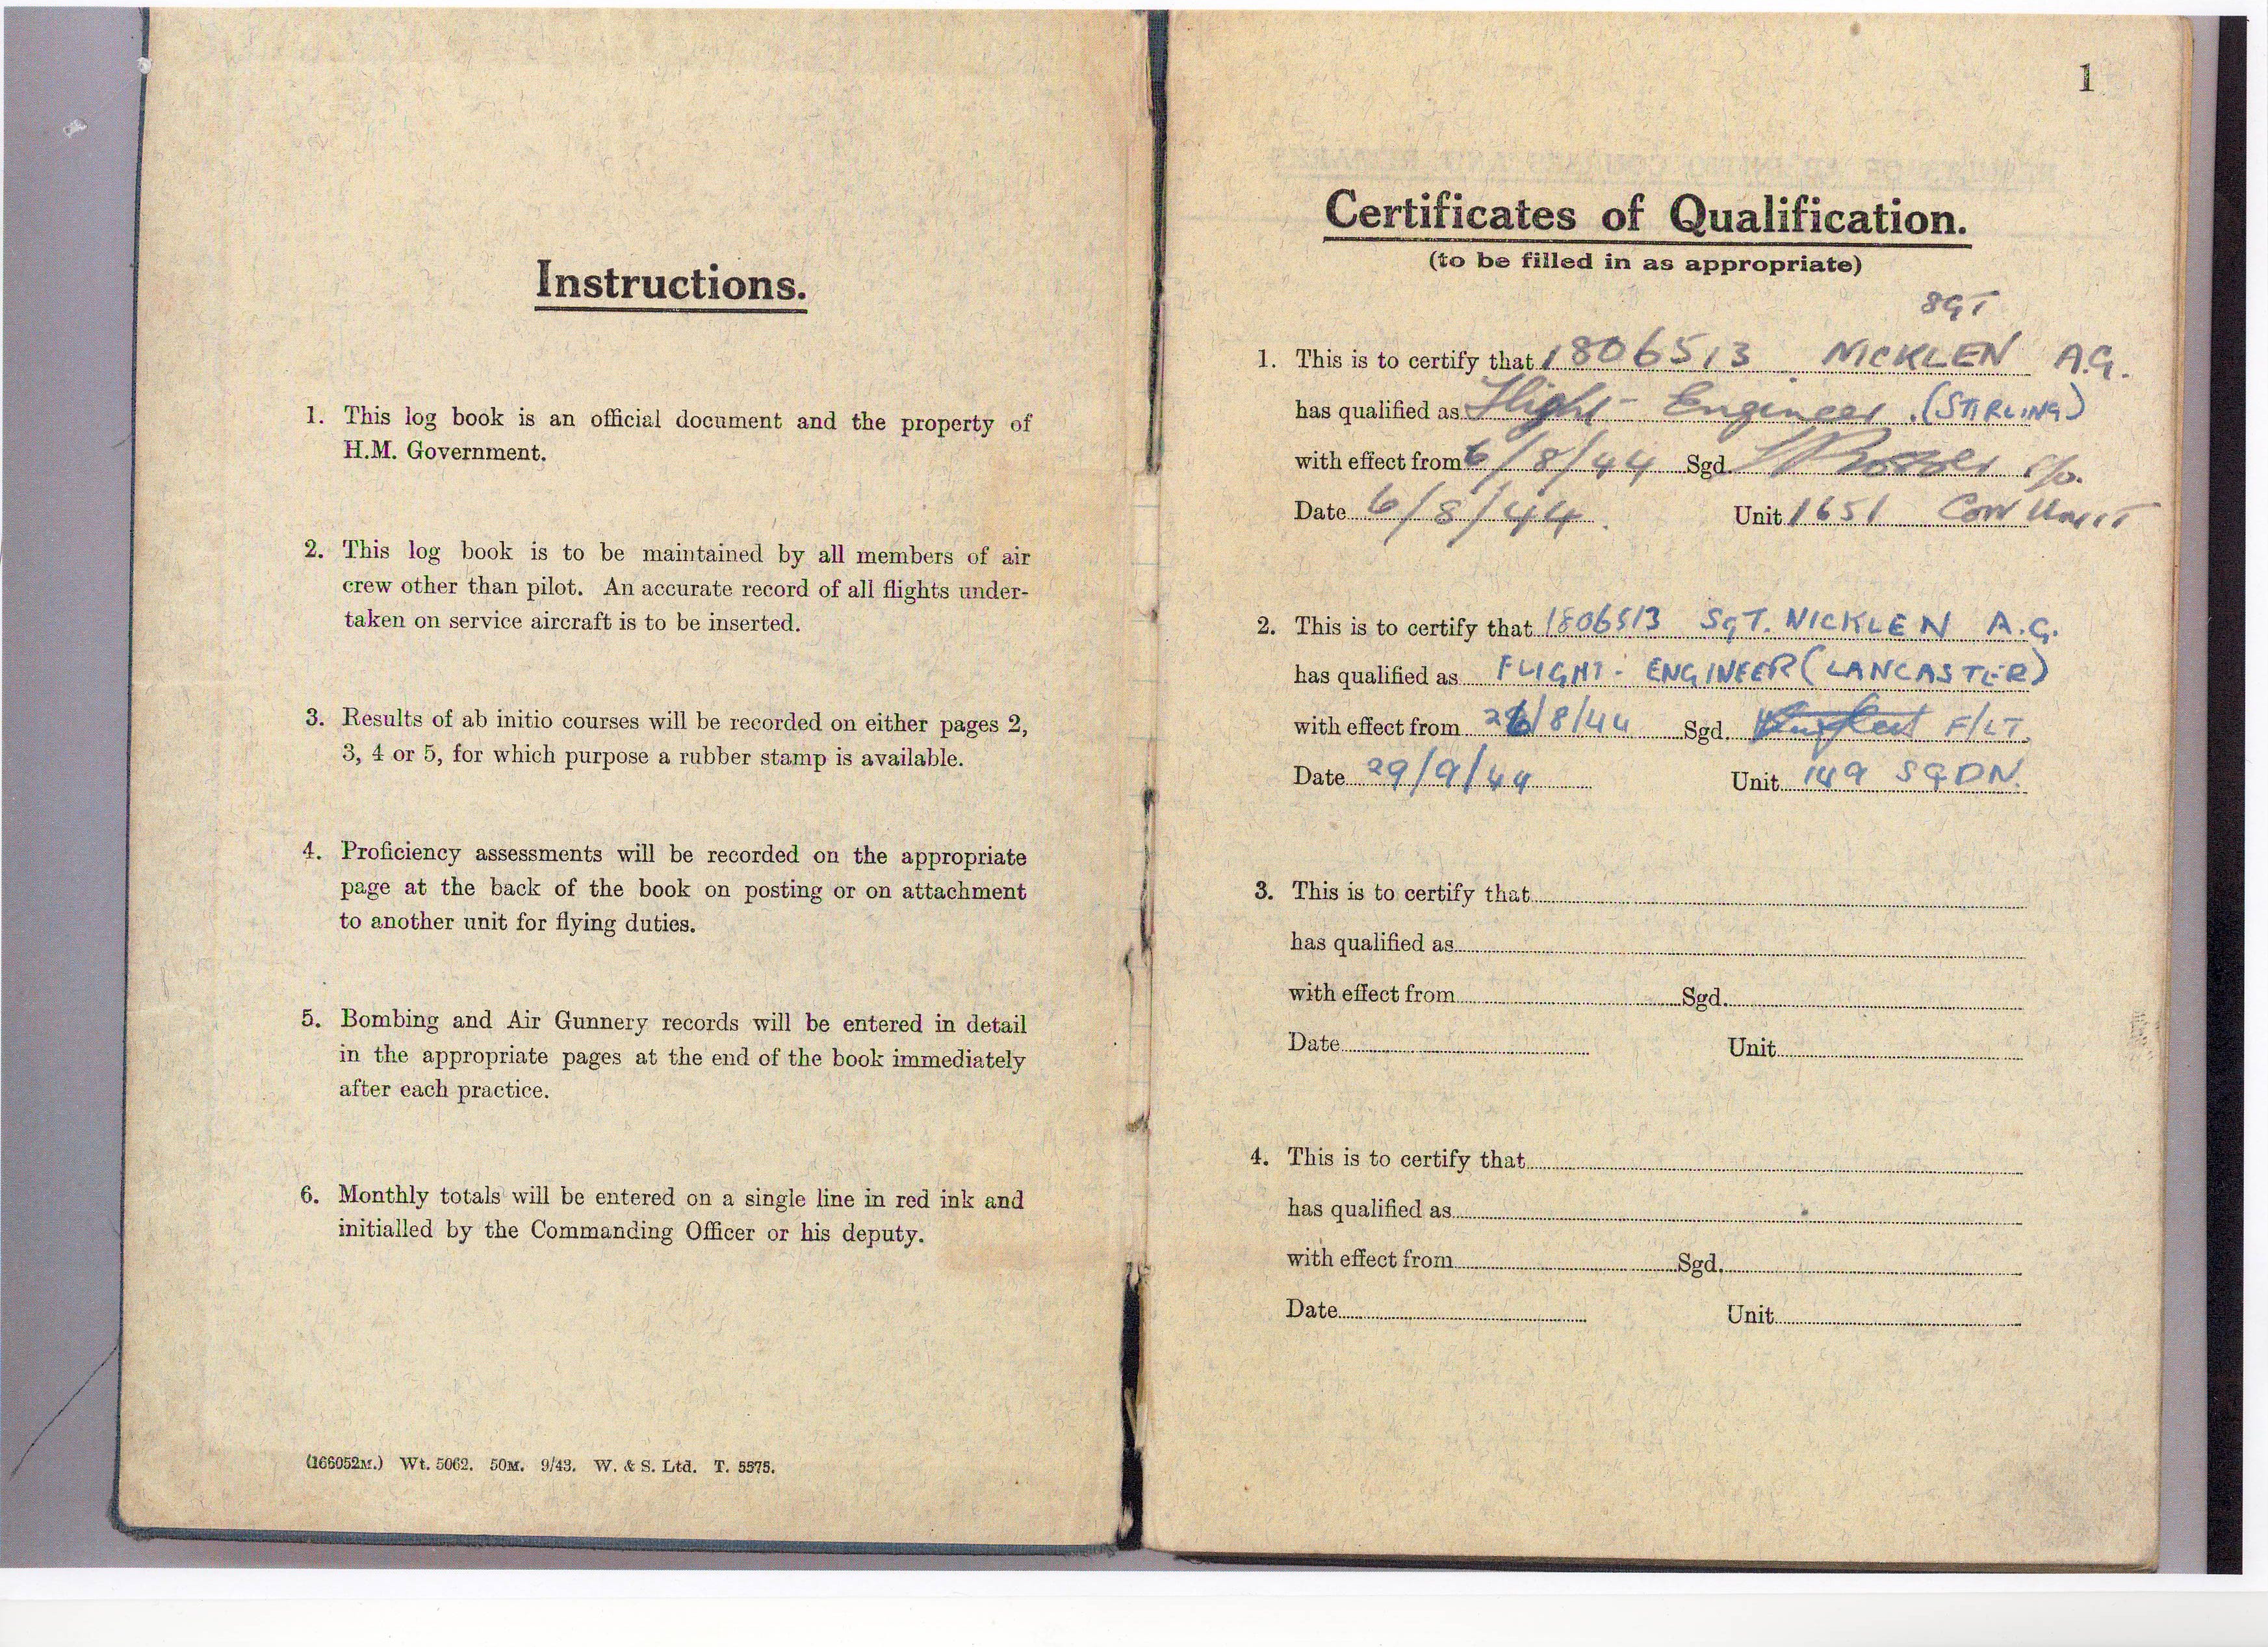 Instructions.
1. This log book is an official document and the property of
H.M. Government.
2. This log book is to be maintained by all members of air
crew other than pilot. An accurate record of all flights under-
taken on service aircraft is to be inserted.
3. Results of ab initio courses will be recorded on either pages 2,
3, 4 or 5, for which purpose a rubber stamp is available.
4. Proficiency assessments will be recorded on the appropriate
page at the back of the book on posting or on attachment
to another unit for flying duties.
5. Bombing and Air Gunnery records will be entered in detail
in the appropriate pages at the end of the book immediately
after each practice.
6. Monthly totals will be entered on a single line in red ink and
initialled by the Commanding Officer or his deputy.
(166052M.) Wt. 5062. 50M. 9/43. W. & S. Ltd. T. 5575.
1
Certificates of Qualification.
(to be filled in as appropriate)
SGT
1. This is to certify that 1806513 NICKLEN A.G.
has qualified as Flight - Engineer. (STIRLING)
with effect from 6/8/44 Sgd.
Date 6/8/44. Unit 1651 Con Unit
2. This is to certify that 1806513 SGT. NICKLEN A.G.
has qualified as FLIGHT - ENGINEER (LANCASTER)
with effect from 26/8/44 Sgd. F/LT.
Date 29/9/44 Unit 149 SQDN.
3. This is to certify that
has qualified as
with effect from Sgd.
Date Unit
4. This is to certify that
has qualified as
with effect from Sgd.
Date Unit